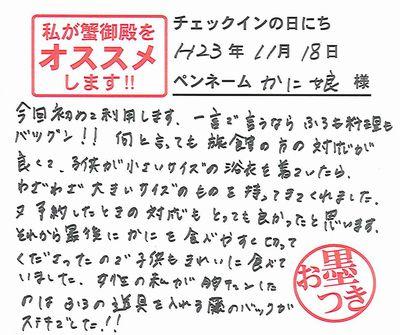 私が蟹御殿を
オススメ
します!!
チェックインの日にち
H23年 11月 18日
ペンネーム かに娘 様
今回初めて利用します。一言で言うなら ふろも料理も
バッグン!! 何と言っても 旅館の方の対応が
良くて、子供が小さいサイズの浴衣を着ていたら、
わざわざ 大きいサイズのものを持ってきてくれました。
又予約したときの対応も とっても良かったと思います。
それから最後に かにを 食べやすく切って
くださったので 子供もきれいに食べて
いました。女性の私が 胸キュンした
のは ふろの道具を入れる籐のバックが
ステキでした!!
墨
おつき